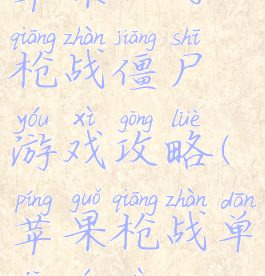 qiāng zhàn jiāng shī
枪战僵尸
yóu xì gōng lüè
游戏攻略(
píng guǒ qiāng zhàn dān
苹果枪战单